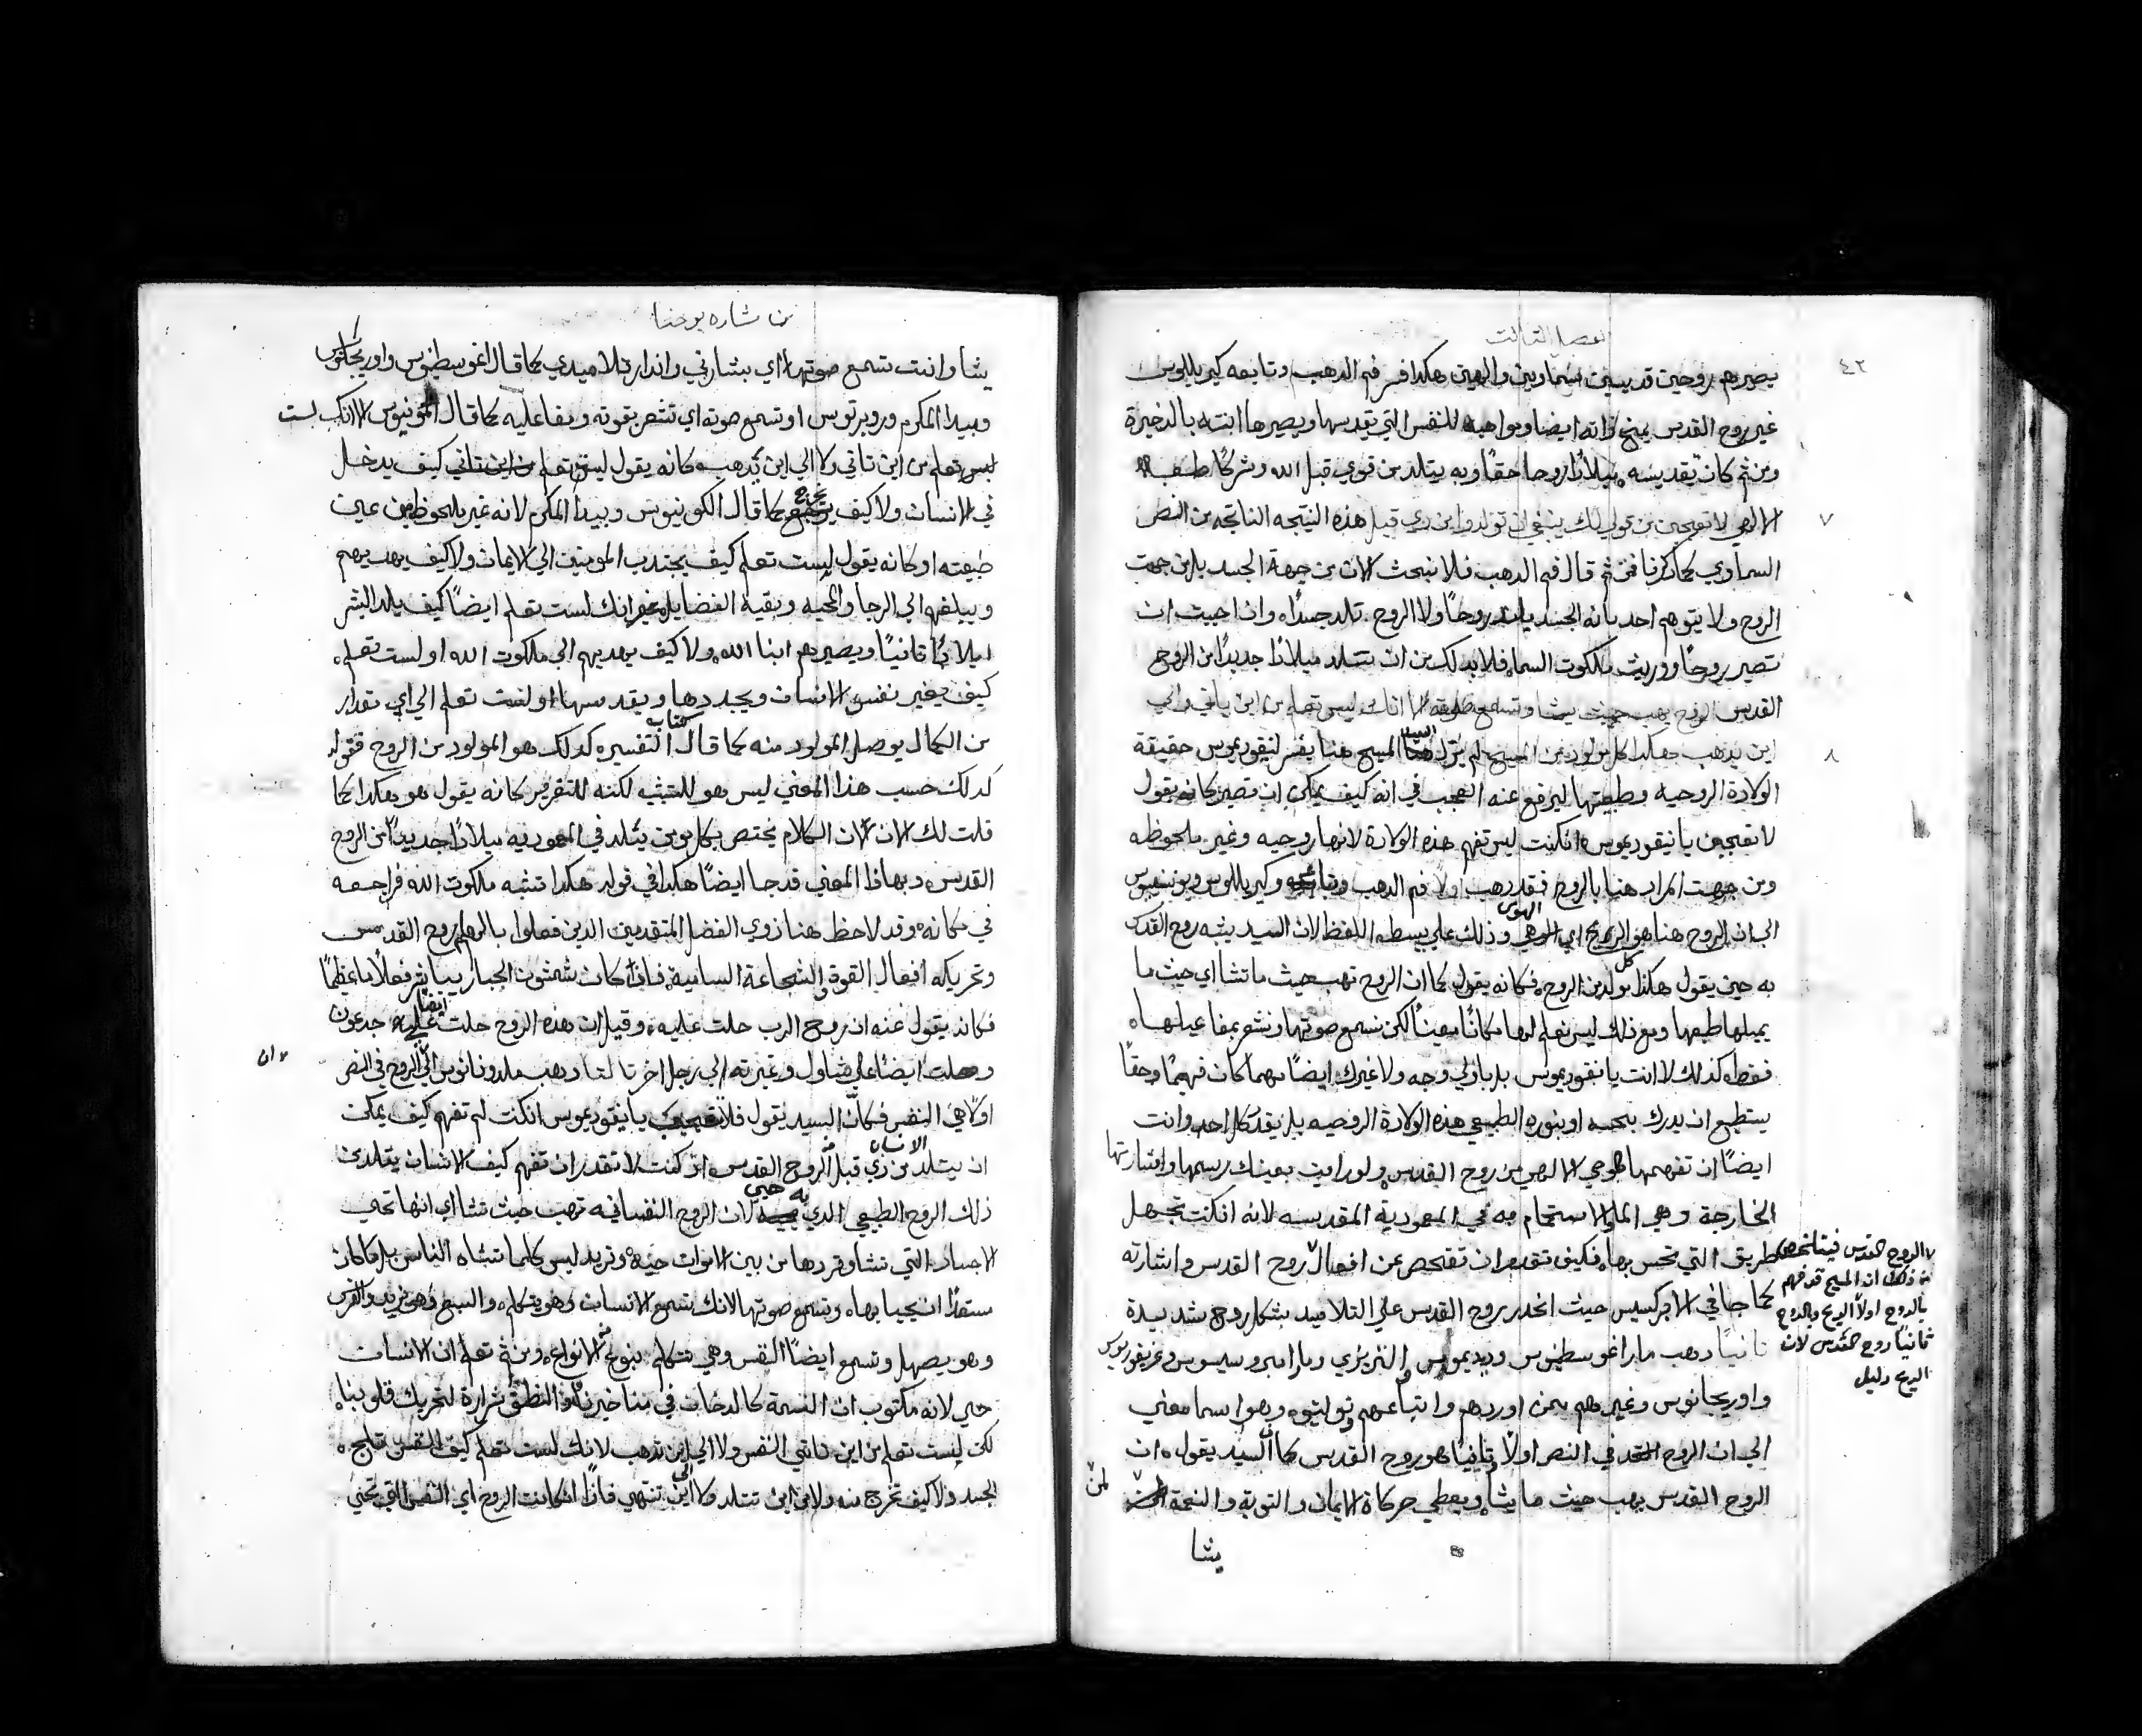 ٤٢
الفصل الثالث
يصيرهم روحيين قديسين سماويين والهيين هكذا فسر فم الدهب وتابعه كيريللوس
غير روح القدس يمنح ذاته ايضا ومواهبه للنفس التي يقدسها ويصيرها ابنته بالدخيرة
ومن ثم كان تقديسه ميلادًا روحيا حقًا وبه يتلد من قوي قبل الله
٧
الالهي لا تعجبن من قولي لك ينبغي ان تولدوا من ذي قبل هذه النتيجه الناتجه من النص
السماوي كما ذكرنا فمن ثم قال فم الدهب فلا نبحث الان من جهة الجسد بل من جهت
الروح ولا يتوهم احد بانه الجسد يلد روحًا ولا الروح تلد جسدًا وان احببت ان
تصير روحًا ووريث ملكوت السما فلا بد لك من ان تتلد ميلادًا جديدًا من الروح
القدس الروح يهب حيث يشا وتسمع صوته الا انك ليس تعلم من اين ياتي والي
٨
اين يدهب هكذا كل مولود من الروح لم يزل السيد المسيح هنا يفسر لنيقوديموس حقيقة
الولادة الروحيه وطبيعتها ليرفع عنه العجب في انه كيف يمكن ان تصير كانه يقول
لا تعجبن يا نيقوديموس ان كنت ليس تفهم هذه الولادة لانها روحيه وغير ملحوظه
ومن جهت المراد هنا بالروح فقد دهب اولا فم الدهب وتابعه وكيريللوس
الي ان الروح هنا هو الريح اي الهوي وذلك علي بسطه اللفظ لان السيد يشبه روح القدس
به حين يقول هكذا كل مولود من الروح فكانه يقول كما ان الروح تهب حيث ما تشا اي حيث ما
يميلها طبعها ومع ذلك ليس نعلم لها مكانًا معينًا لكن نسمع صوتها ونشعر بمفاعيلها
فقط كذلك لا انت يا نيقوديموس بل باولي وجه ولا غيرك ايضًا مهما كان فهيمًا وحقًا
يستطيع ان يدرك بحسه او بنوره الطبيعي هذه الولادة الروحيه بل يقدر كل احد وانت
ايضًا ان تفهمها بالوحي الالهي من روح القدس ولو رايت بعينك رسمها واشارتها
الخارجة وهي الما والاستحمام به في المعمودية المقدسه لانه ان كنت تجهل
طريق التي تحس بها فكيف تقدر ان تفحص عن افعال روح القدس واشارته
كما جا في الابركسيس حيث انحدر روح القدس علي التلاميد بشكل روح شديدة
ثانيًا دهب مار اغوسطينوس وديديموس والنزينزي ومار امبروسيوس وغريغوريوس
واوريجانوس وغيرهم ممن اوردهم واتباعهم توليتوس وهو اسما معني
الي ان الروح في النص اولًا وثانيًا هو روح القدس كما ان السيد يقول ان
الروح القدس يهب حيث ما يشا ويعطي حركاة الايمان والتوبة والنعمة لمن
يشا
والروح القدس فينا نتحصل
من ذلك ان المسيح قد فهم
بالروح اولًا الريح وبالروح
ثانيًا روح القدس لان
الريح دليل
من بشاره يوحنا
يشا وانت تسمع صوتها اي بشارتي وانذار تلاميدي كما قال اغوسطينوس واوريجانوس
وبيدا المكرم وروبرتوس او تسمع صوته اي تشعر بقوته وبفاعليه كما قال امونيوس الا انك لست
تعلم من اين تاتي ولا الي اين تدهب كانه يقول ليس تعلم كيف يدخل
في الانسان ولا كيف يخرج كما قال الكوينوس وبيدا المكرم لانه غير ملحوظ من عين
طبيعته او كانه يقول لست تعلم كيف يجتدب المومنين الي الايمان ولا كيف يهب بهم
ويبلغهم الي الرجا والمحبه وبقية الفضايل انك لست تعلم ايضًا كيف يلد البشر
ميلادًا ثانيًا ويصيرهم ابنا الله ولا كيف يهديهم الي ملكوت الله او لست تعلم
كيف يغير نفس الانسان ويجددها ويقدسها او لست تعلم الي اي مقدار
من الكمال يوصل المولود منه كما قال كتاب التفسير كدلك هو المولود من الروح فقوله
كدلك حسب هذا المعني ليس هو للتشبيه لكنه للتقرير كانه يقول هو هكذا كما
قلت لك الان لان الكلام يختص بكل مومن يتلد في المعموديه ميلادًا جديدًا من الروح
القدس وبهاذا المعني قد جا ايضًا هكذا في قوله هكذا تشبه ملكوت الله فراجعه
في مكانه وقد لاحظ هنا ذوي الفضل المتقدمين الدين فعلوا بالهام روح القدس
وتحريكه افعال القوة والشجاعة السامية فاذا كان شمشون الجبار يباشر فعلًا ما عظيمًا
فكان يقول عنه ان روح الرب حلت عليه وقيل ان هذه الروح حلت ايضًا علي جدعون
وحلت ايضًا علي شاول وغيرته الي رجل اخر ثالثًا دهب ملدوناتوس الي ان الروح في النص
اولًا هي النفس فكان السيد يقول فلا تعجب يا نيقوديموس ان كنت لم تفهم كيف يمكن
ان يتلد الانسان من ذي قبل من الروح القدس ان كنت لا تقدر ان تفهم كيف الانسان يتلد من
ذلك الروح الطبيعي الدي به حيي لان الروح النفسانيه تهب حيث تشا اي انها تحيي
الاجساد التي تشا وتردها من بين الاموات حيه وتريد ليس كلما تشاه الناس بل ما كان
مستعدًا ان يحيا بها وتسمع صوتها لانك تسمع الانسان وهو يتكلم والسبع وهو يزير والفرس
وهو يصهل وتسمع ايضًا النفس وهي تتكلم بنوع من الانواع ومن ثم تعلم ان الانسان
حي لانه مكتوب ان النسمة كالدخان في مناخيرنا والنطق شرارة لتحريك قلوبنا
لكن ليست تعلم من اين تاتي النفس ولا الي اين تدهب لانك لست تعلم كيف النفس تلج
الجسد ولا كيف تخرج منه ولا من اين تتلد ولا الي اين تنتهي فاذًا ان كانت الروح اي النفس التي تحيي